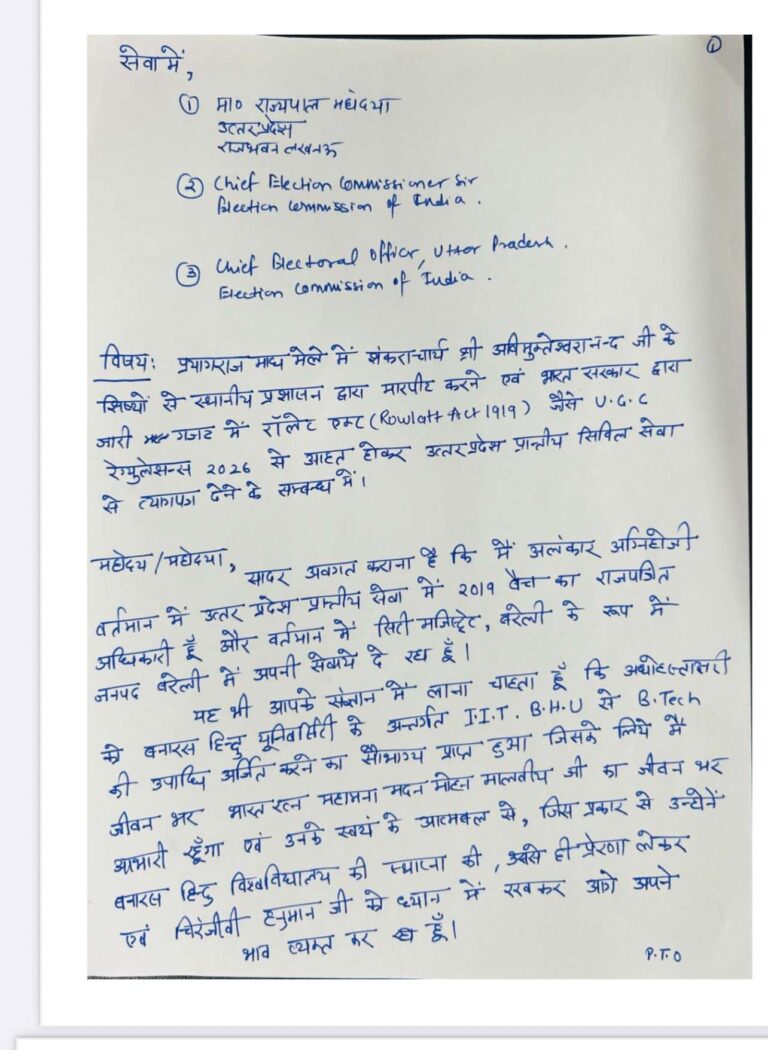 ①
सेवा में,
① मा० राज्यपाल महोदया
उत्तर प्रदेश
राजभवन लखनऊ
② Chief Election Commissioner Sir
Election Commission of India.
③ Chief Electoral Officer, Uttar Pradesh.
Election Commission of India.
विषय: प्रयागराज माघ मेले में शंकराचार्य श्री अविमुक्तेश्वरानन्द जी के
शिष्यों से स्थानीय प्रशासन द्वारा मारपीट करने एवं भारत सरकार द्वारा
जारी गजट में रॉलेट एक्ट (Rowlatt Act 1919) जैसे U.G.C
रेग्युलेसन्स 2026 से आहत होकर उत्तर प्रदेश प्रान्तीय सिविल सेवा
से त्यागपत्र देने के सम्बन्ध में।
महोदय/महोदया,
सादर अवगत कराना है कि मैं अलंकार अग्निहोत्री
वर्तमान में उत्तर प्रदेश प्रान्तीय सेवा में 2019 बैच का राजपत्रित
अधिकारी हूँ और वर्तमान में सिटी मजिस्ट्रेट, बरेली के रूप में
जनपद बरेली में अपनी सेवायें दे रहा हूँ।
यह भी आपके संज्ञान में लाना चाहता हूँ कि अधोहस्ताक्षरी
को बनारस हिन्दू यूनिवर्सिटी के अन्तर्गत I.I.T. B.H.U से B.Tech
की उपाधि अर्जित करने का सौभाग्य प्राप्त हुआ जिसके लिये मैं
जीवन भर भारत रत्न महामना मदन मोहन मालवीय जी का जीवन भर
आभारी रहूँगा एवं उनके स्वयं के आत्मबल से, जिस प्रकार से उन्होनें
बनारस हिन्दू विश्वविद्यालय की स्थापना की, उससे ही प्रेरणा लेकर
एवं चिरंजीवी हनुमान जी को ध्यान में रखकर आगे अपने
भाव व्यक्त कर रहा हूँ।
P.T.O